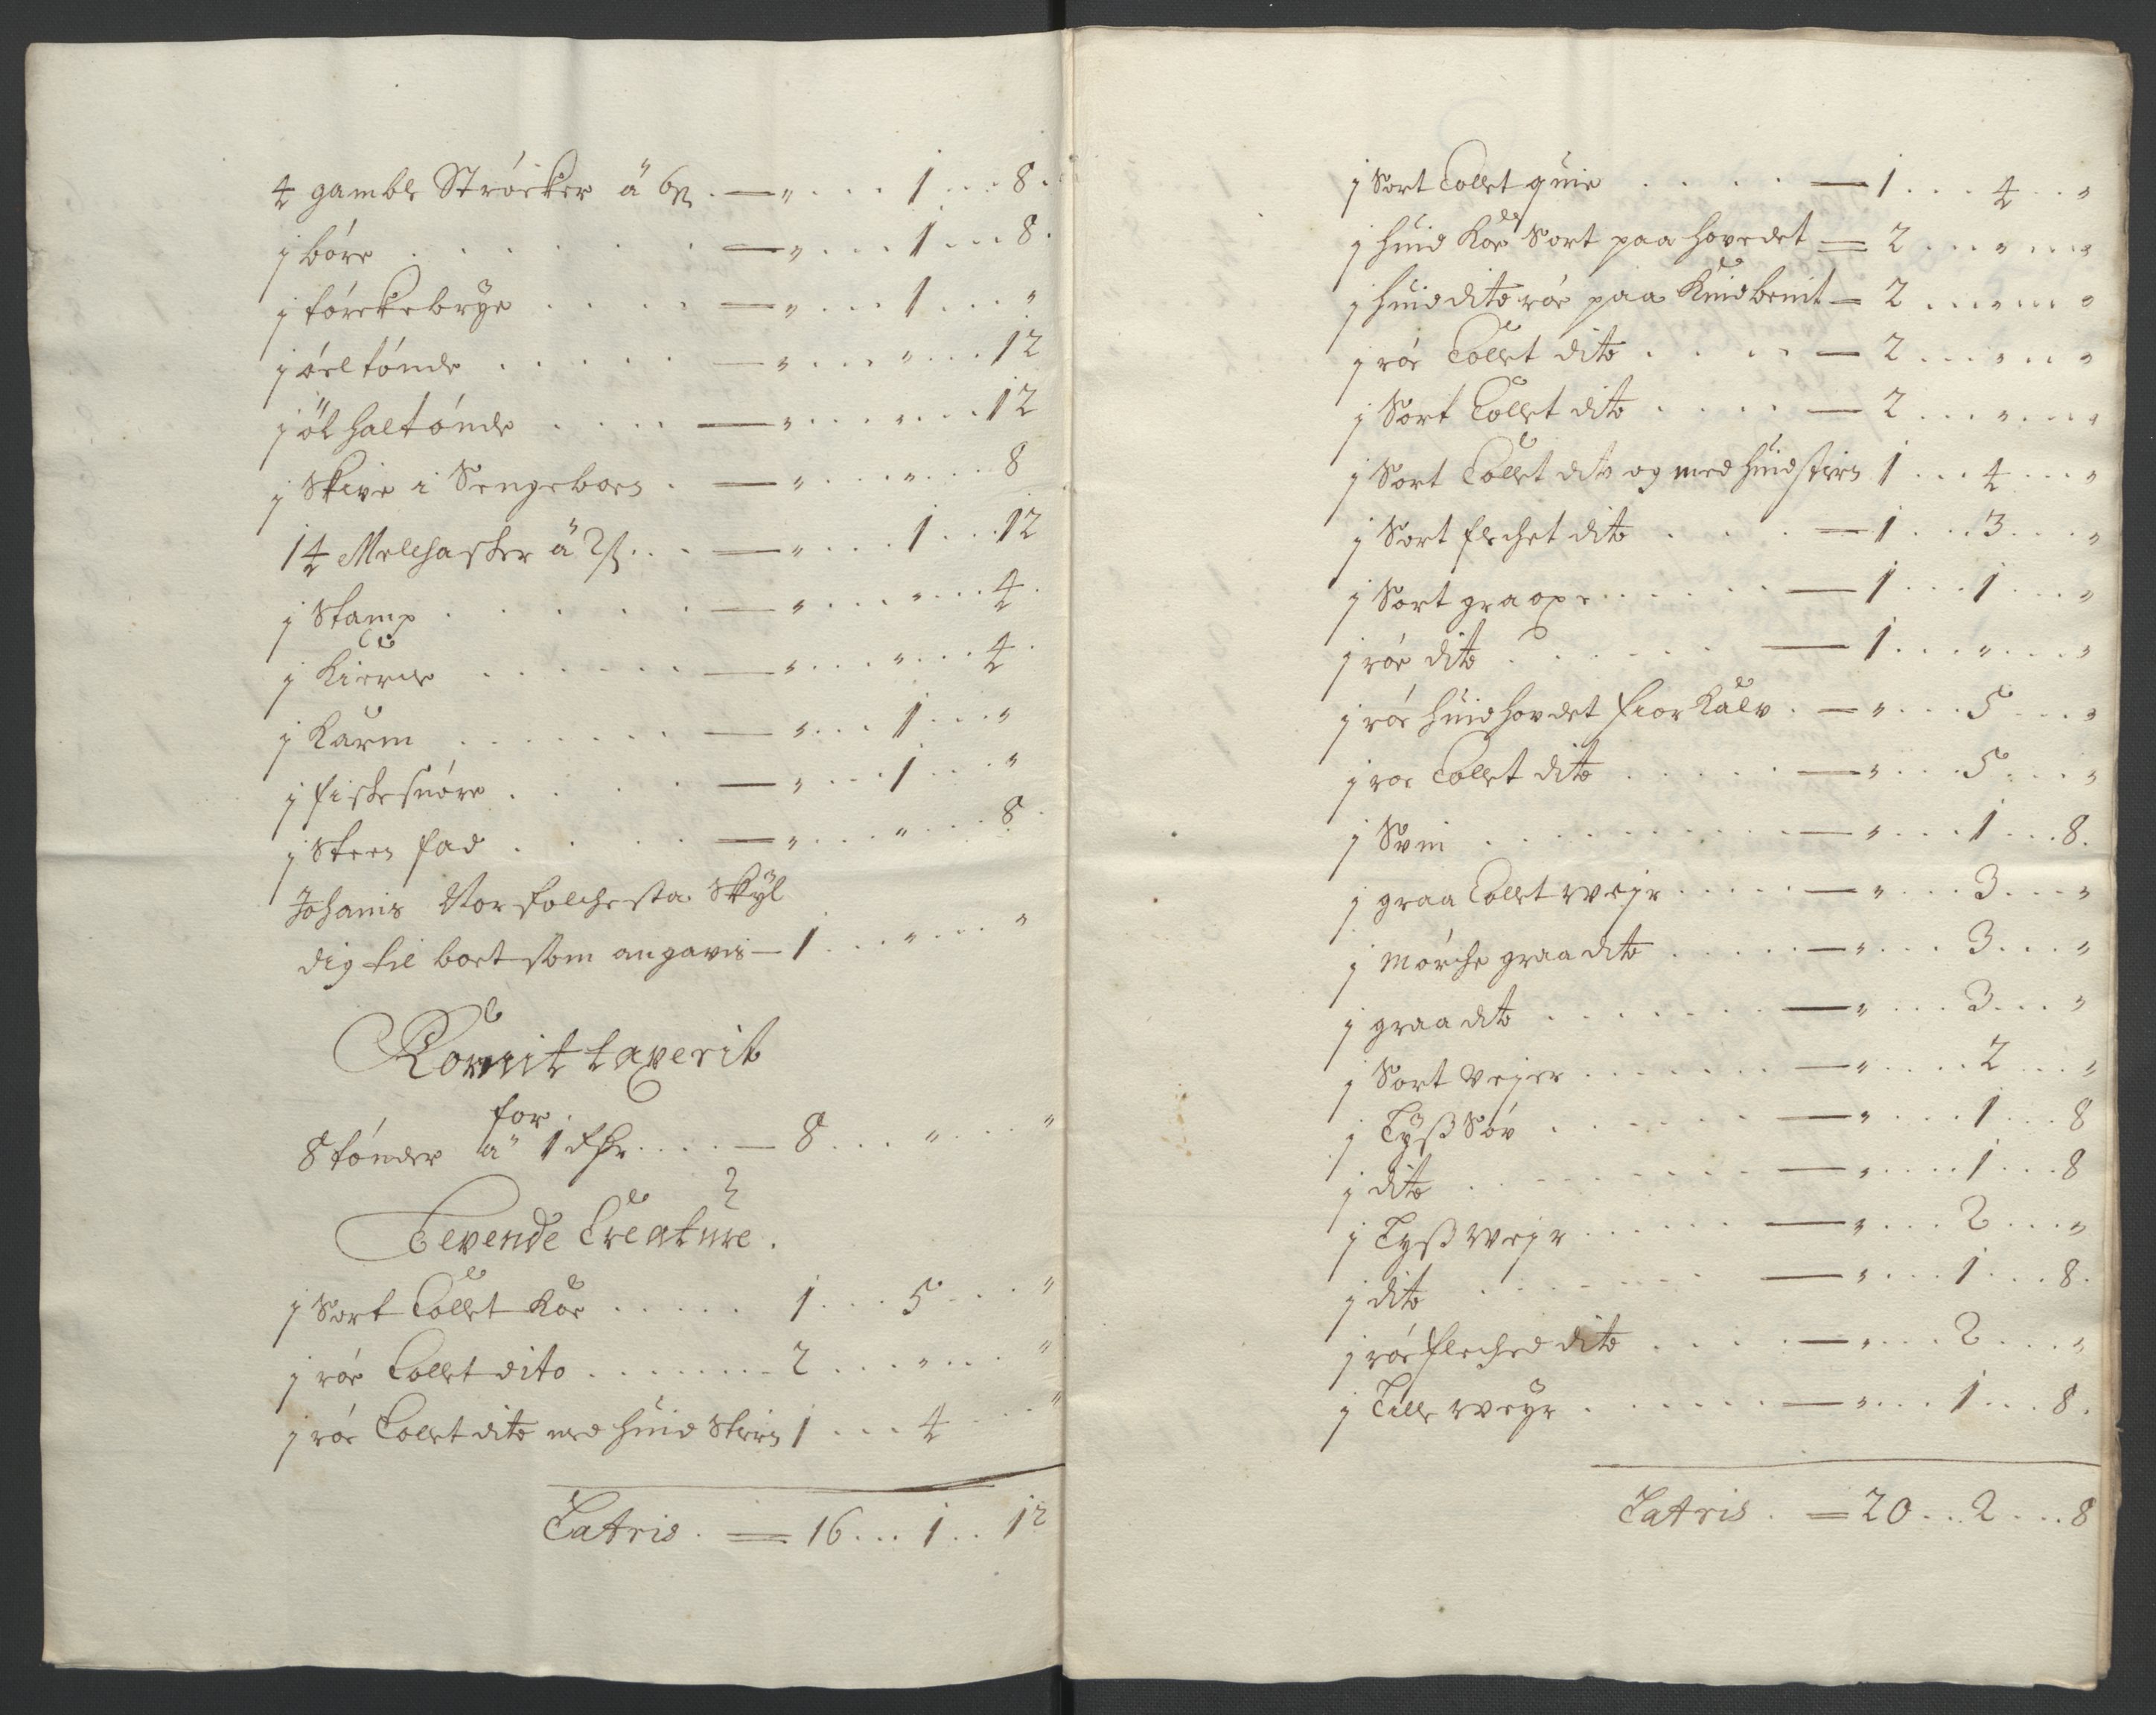 4 gamble Strócker ä 6 β . — " . . . 1 . . . 8 .
j bóre . . . . . — " . . . 1 . . . 8 .
j tórckebrÿe . . . . — " . . . 1 . . . "
j óeltónde . . . . . — " . . . " . . . 12
j öl haltónde . . . . — " . . . " . . . 12
j Skive i Sengeboen . — " . . . " . . . 8
14 Melchasker ä 2 β . . . — " . . . 1 . . . 12
j Stamp . . . . . — " . . . " . . . 4 .
j Kierne . . . . . — " . . . " . . . 4 .
j Karm . . . . . . — " . . . 1 . . . "
j fiskesnóre . . . . — " . . . 1 . . . "
j Steen fad . . . . — " . . . " . . . 8 .
Johanis Skÿl
dig til boet som angavis — 1 . . . " . . . "
Kornit taxerit
for
8 tónder ä 1 dlr . . . . — 8 . . . " . . . "
Levende Creature .
j Sort Collet Koe . . . . . 1 . . . 5 . . . "
j róe Collet dito . . . . . . . 2 . . . " . . . "
j róe Collet dito med huid Stiern 1 . . . 4 . . . "
Latris . = 16 . . . 1 . . 12
j Sort Collet quie . . . . — 1 . . . 4 . . "
j huid Koe Sort paa hovedet = 2 . . . " . . . "
j huid dito róe paa Kindbenit = 2 . . . " . . . "
j róe Collet dito . . . . — 2 . . . " . . "
j Sort Collet dito . . . . — 2 . . . " . . . "
j Sort Collet dito og med huid stiern 1 . . . 4 . . . "
j Sort flechet dito . . . . — 1 . . . 3 . . . "
j Sort graa oxe . . . . . — 1 . . . 1 . . . "
j róe dito . . . . . . — 1 . . . " . . . "
j róe huidhovdet fior Kalv . — " . . . 5 . . . "
j roe Collet dito . . . . . — " . . . 5 . . . "
j Svin . . . . . . . . . — " . . . 1 . . . 8 .
j graa Collet weyr . . . . . — " . . . 3 . . . "
j mórche graa dito . . . . . — " . . . 3 . . . "
j graa dito . . . . . . . — " . . . 3 . . . "
j Sort veyer . . . . . . . — " . . . . 2 . . . "
j Lÿß Sóv . . . . . . — " . . . . 1 . . . 8
j dito . . . . . . . . — " . . . . 1 . . . 8
j Lyß weyr . . . . . . — " . . . 2 . . . "
j dito . . . . . . . — " . . . 1 . . . 8 .
j róe fleched dito . . . . . — " . . . 2 . . . "
j Lille weÿr . . . . . . — " . . . 1 . . . 8 .
Latris . = 20 . . 2 . . . 8